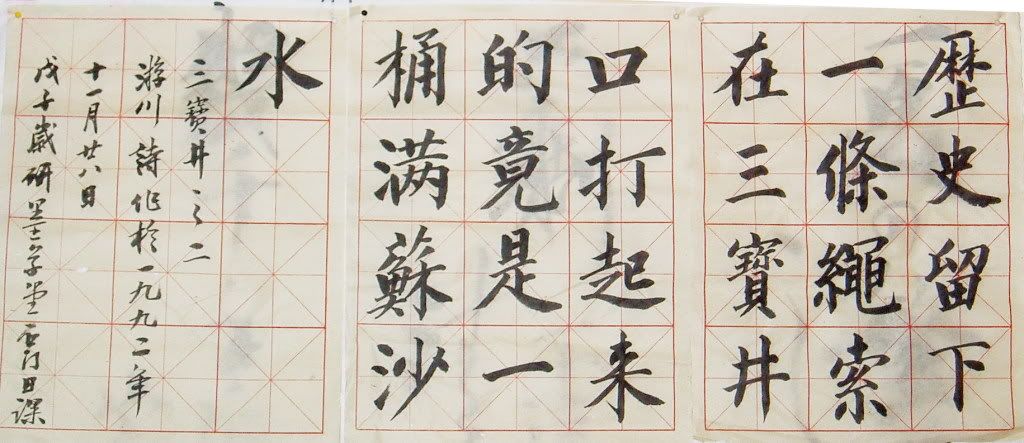 歷史留下
一條繩索
在三寶井
口打起来
的竟是一
桶满蘇沙
水
三寶井之二
游川詩作於一九九二年
十一月廿八日
戊子歲研墨草堂日課